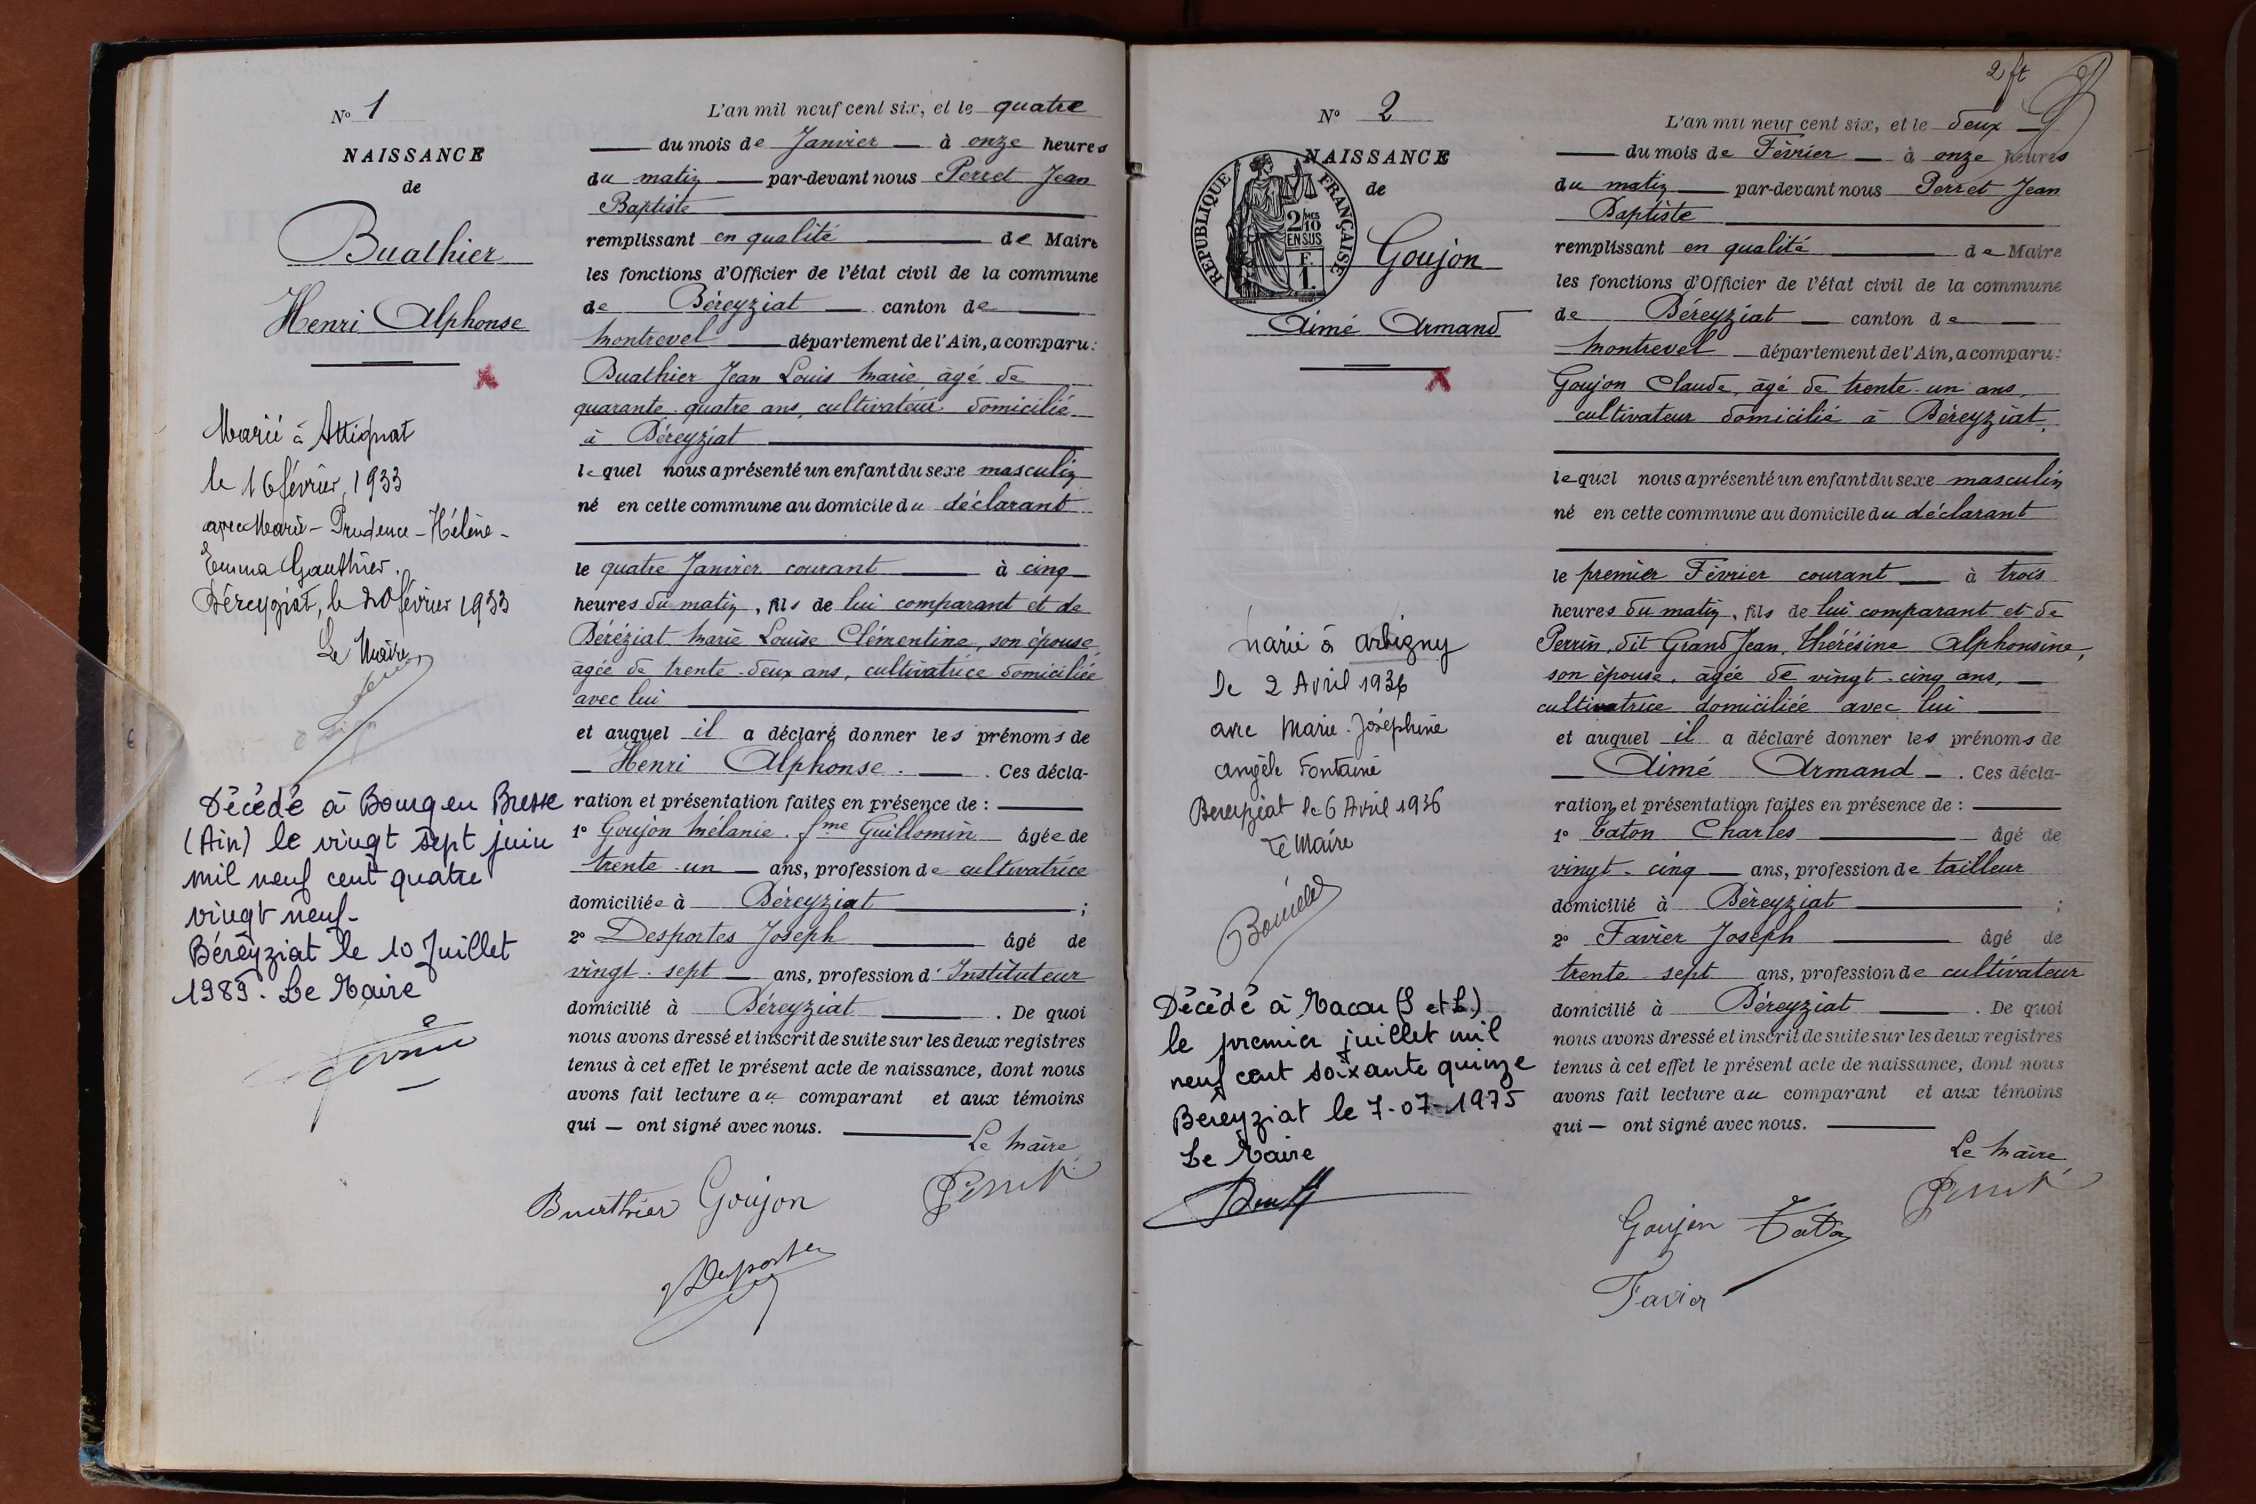 N° 1
NAISSANCE
de
Buathier
Henri Alphonse
Marié à Attignat
le 16 février 1933
avec Marie-Prudence-Hélène-
Emma Gauthier.
Béreyziat, le 20 février 1933
Le Maire
Décédé à Bourg en Bresse
(Ain) le vingt sept juin
mil neuf cent quatre
vingt neuf-
Béreyziat le 10 Juillet
1989. Le Maire
L'an mil neuf cent six, et le quatre
du mois de Janvier à onze heures
du matin par-devant nous Perret Jean
Baptiste
remplissant en qualité de Maire
les fonctions d'Officier de l'état civil de la commune
de Béreyziat canton de
Montrevel département de l'Ain, a comparu:
Buathier Jean Louis Marie, âgé de
quarante-quatre ans, cultivateur domicilié
à Béreyziat
lequel nous a présenté un enfant du sexe masculin
né en cette commune au domicile du déclarant
le quatre Janvier courant à cinq
heures du matin, fils de lui comparant et de
Béréziat Marie Louise Clémentine, son épouse,
âgée de trente-deux ans, cultivatrice domiciliée
avec lui
et auquel il a déclaré donner les prénoms de
Henri Alphonse. Ces décla-
ration et présentation faites en présence de :
1° Goujon Mélanie fme Guillomin âgée de
trente-un ans, profession de cultivatrice
domiciliée à Béreyziat ;
2° Desportes Joseph âgé de
vingt-sept ans, profession d'Instituteur
domicilié à Béreyziat. De quoi
nous avons dressé et inscrit de suite sur les deux registres
tenus à cet effet le présent acte de naissance, dont nous
avons fait lecture au comparant et aux témoins
qui — ont signé avec nous.
Le Maire
Buathier Goujon Perret
Desportes
2 ft
N° 2
NAISSANCE
de
RÉPUBLIQUE FRANÇAISE
2/10 MES
EN SUS
F.
1.
Goujon
Aimé Armand
Marié à Arbigny
le 2 Avril 1936
avec Marie-Joséphine
Angèle Fontaine
Bereyziat le 6 Avril 1936
Le Maire
Décédé à Macon (S et L)
le premier juillet mil
neuf cent soixante quinze
Béreyziat le 7-07-1975
Le Maire
L'an mil neuf cent six, et le deux
du mois de Février à onze heures
du matin par-devant nous Perret Jean
Baptiste
remplissant en qualité de Maire
les fonctions d'Officier de l'état civil de la commune
de Béreyziat canton de
Montrevel département de l'Ain, a comparu:
Goujon Claude, âgé de trente-un ans,
cultivateur domicilié à Béreyziat,
lequel nous a présenté un enfant du sexe masculin
né en cette commune au domicile du déclarant
le premier Février courant à trois
heures du matin, fils de lui comparant et de
Perrin, dit Grand Jean, Thérésine Alphonsine,
son épouse, âgée de vingt-cinq ans,
cultivatrice domiciliée avec lui
et auquel il a déclaré donner les prénoms de
Aimé Armand. Ces décla-
ration et présentation faites en présence de :
1° Taton Charles âgé de
vingt-cinq ans, profession de tailleur
domicilié à Béreyziat ;
2° Favier Joseph âgé de
trente-sept ans, profession de cultivateur
domicilié à Béreyziat. De quoi
nous avons dressé et inscrit de suite sur les deux registres
tenus à cet effet le présent acte de naissance, dont nous
avons fait lecture au comparant et aux témoins
qui — ont signé avec nous.
Le Maire
Perret
Goujon Taton
Favier